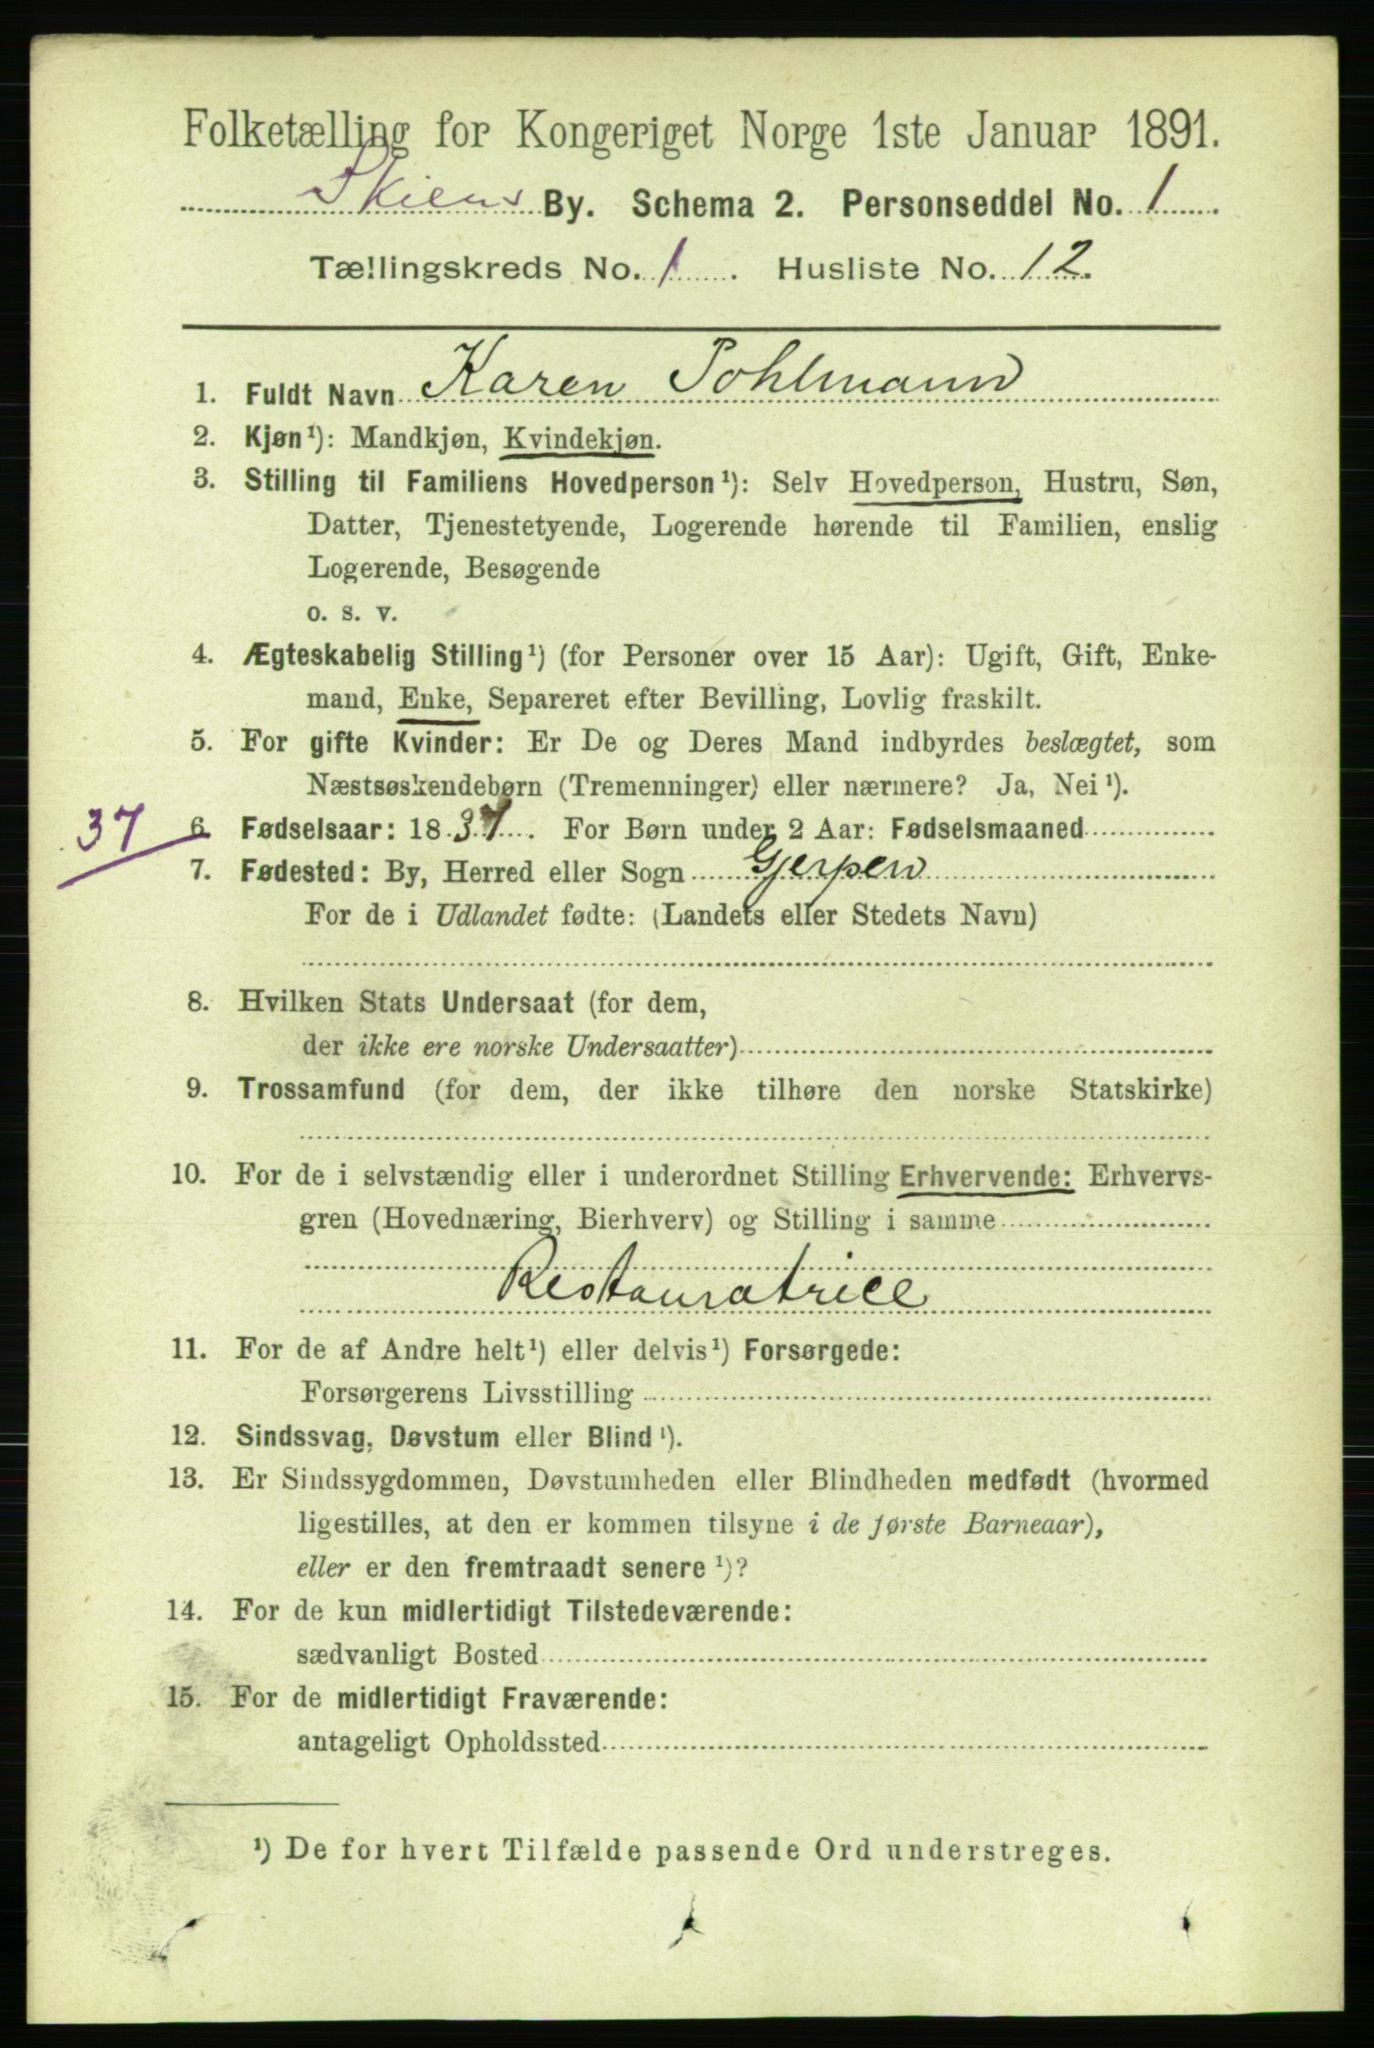 Folketælling for Kongeriget Norge 1ste Januar 1891.
Skiens By. Schema 2. Personseddel No. 1
Tællingskreds No. 1. Husliste No. 12.
1. Fuldt Navn Karen Pohlmann
2. Kjøn¹): Mandkjøn, Kvindekjøn.
3. Stilling til Familiens Hovedperson¹): Selv Hovedperson, Hustru, Søn,
Datter, Tjenestetyende, Logerende hørende til Familien, enslig
Logerende, Besøgende
o. s. v.
4. Ægteskabelig Stilling¹) (for Personer over 15 Aar): Ugift, Gift, Enke-
mand, Enke, Separeret efter Bevilling, Lovlig fraskilt.
5. For gifte Kvinder: Er De og Deres Mand indbyrdes beslægtet, som
Næstsøskendebørn (Tremenninger) eller nærmere? Ja, Nei¹).
37 6. Fødselsaar: 1837. For Børn under 2 Aar: Fødselsmaaned
7. Fødested: By, Herred eller Sogn Gjerpen
For de i Udlandet fødte: (Landets eller Stedets Navn)
8. Hvilken Stats Undersaat (for dem,
der ikke ere norske Undersaatter)
9. Trossamfund (for dem, der ikke tilhøre den norske Statskirke)
10. For de i selvstændig eller i underordnet Stilling Erhvervende: Erhvervs-
gren (Hovednæring, Bierhverv) og Stilling i samme
Restauratrice
11. For de af Andre helt¹) eller delvis¹) Forsørgede:
Forsørgerens Livsstilling
12. Sindssvag, Døvstum eller Blind¹).
13. Er Sindssygdommen, Døvstumheden eller Blindheden medfødt (hvormed
ligestilles, at den er kommen tilsyne i de første Barneaar),
eller er den fremtraadt senere¹)?
14. For de kun midlertidigt Tilstedeværende:
sædvanligt Bosted
15. For de midlertidigt Fraværende:
antageligt Opholdssted
¹) De for hvert Tilfælde passende Ord understreges.